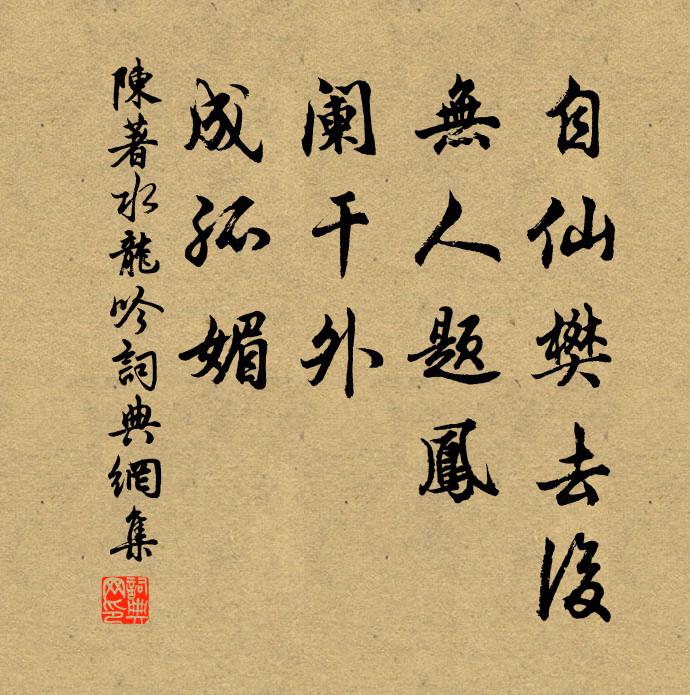 自仙樊去後
無人題鳳
阑干外
成孤媚
陳著水龍吟詞典網集
詞典网印